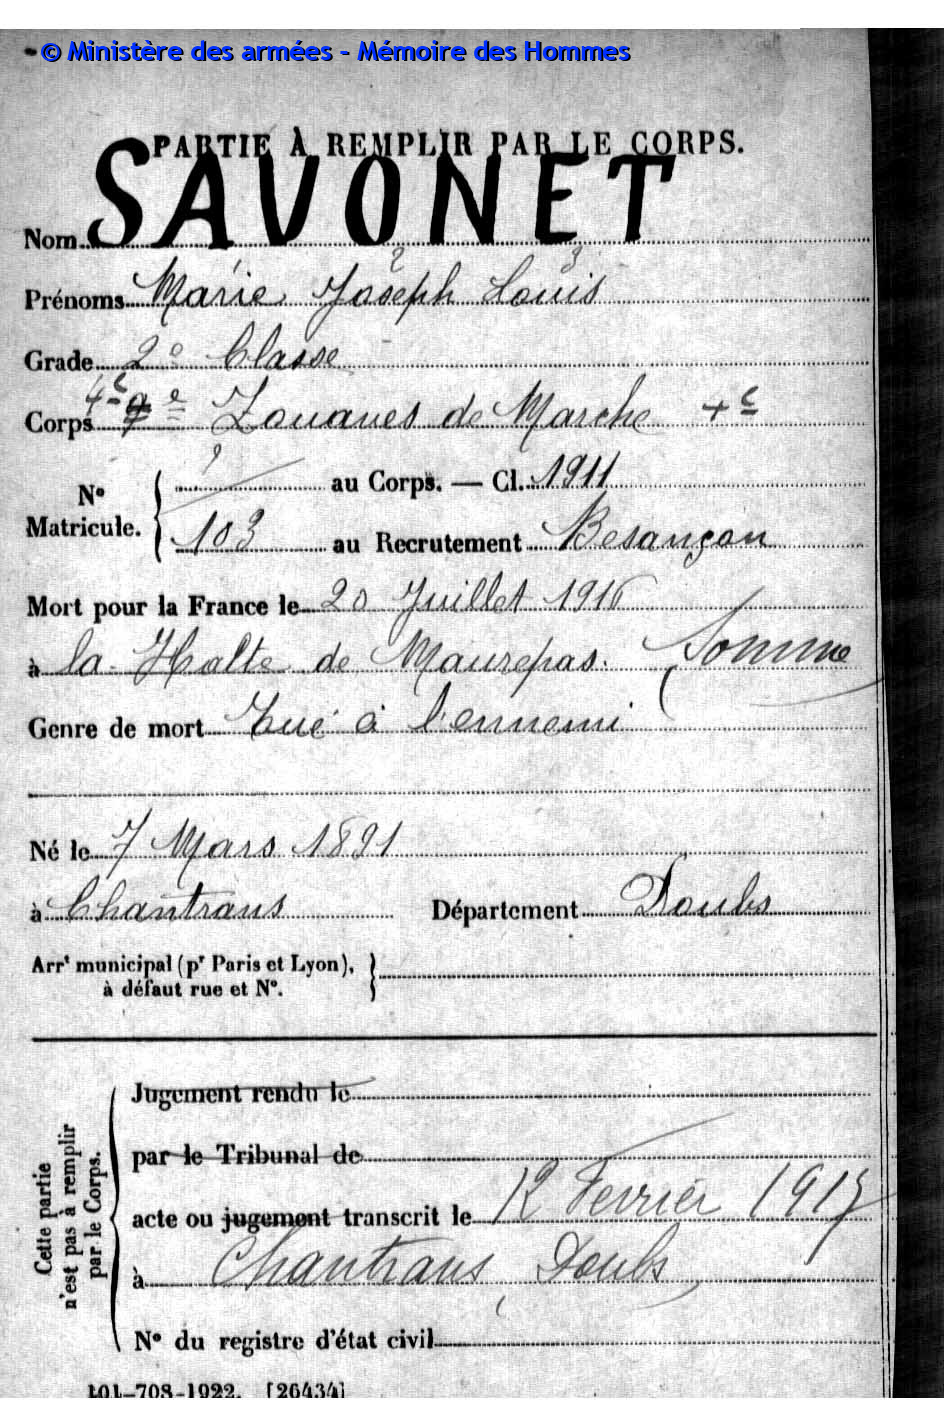 © Ministère des armées - Mémoire des Hommes
PARTIE À REMPLIR PAR LE CORPS.
Nom SAVONET
1 2 3
Prénoms Marie Joseph Louis
Grade 2e Classe
Corps 4e 9e Zouaves de Marche 4e
N° Matricule. { ? au Corps. — Cl. 1911
103 au Recrutement Besançon
Mort pour la France le 20 Juillet 1916
à la Halte de Maurepas. (Somme
Genre de mort Tué à l'ennemi
Né le 7 Mars 1891
à Chantrans Département Doubs
Arrt municipal (pr Paris et Lyon), }
à défaut rue et N°.
Cette partie n'est pas à remplir par le Corps.
Jugement rendu le
par le Tribunal de
acte ou jugement transcrit le 12 Février 1917
à Chantrans, Doubs
N° du registre d'état civil
101-708-1922. [26434]